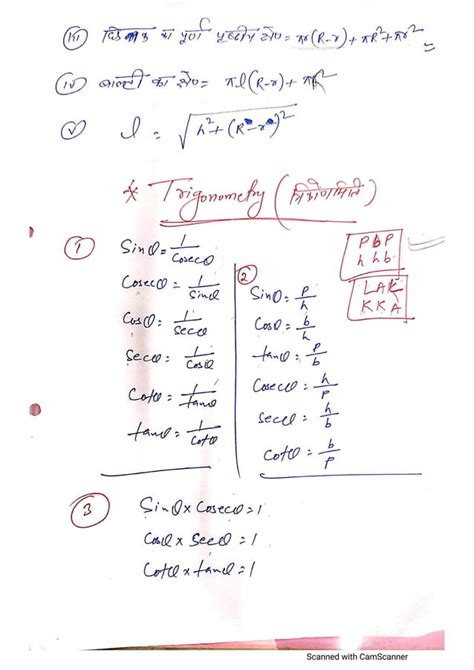 (iii) छिन्नक का पूर्ण पृष्ठीय क्षे० = πl(R-r) + πR² + πr²
(iv) बाल्टी का क्षे० = πl(R-r) + πR²
(v) l = √h²+(R-r)²
* Trigonometry (त्रिकोणमिति)
① Sinθ = 1/Cosecθ
Cosecθ = 1/Sinθ
Cosθ = 1/Secθ
Secθ = 1/Cosθ
Cotθ = 1/tanθ
tanθ = 1/Cotθ
② Sinθ = p/h
Cosθ = b/h
tanθ = p/b
Cosecθ = h/p
Secθ = h/b
Cotθ = b/p
P b P
h h b
LAL
KKA
③ Sinθ × Cosecθ = 1
Cosθ × Secθ = 1
Cotθ × tanθ = 1
Scanned with CamScanner